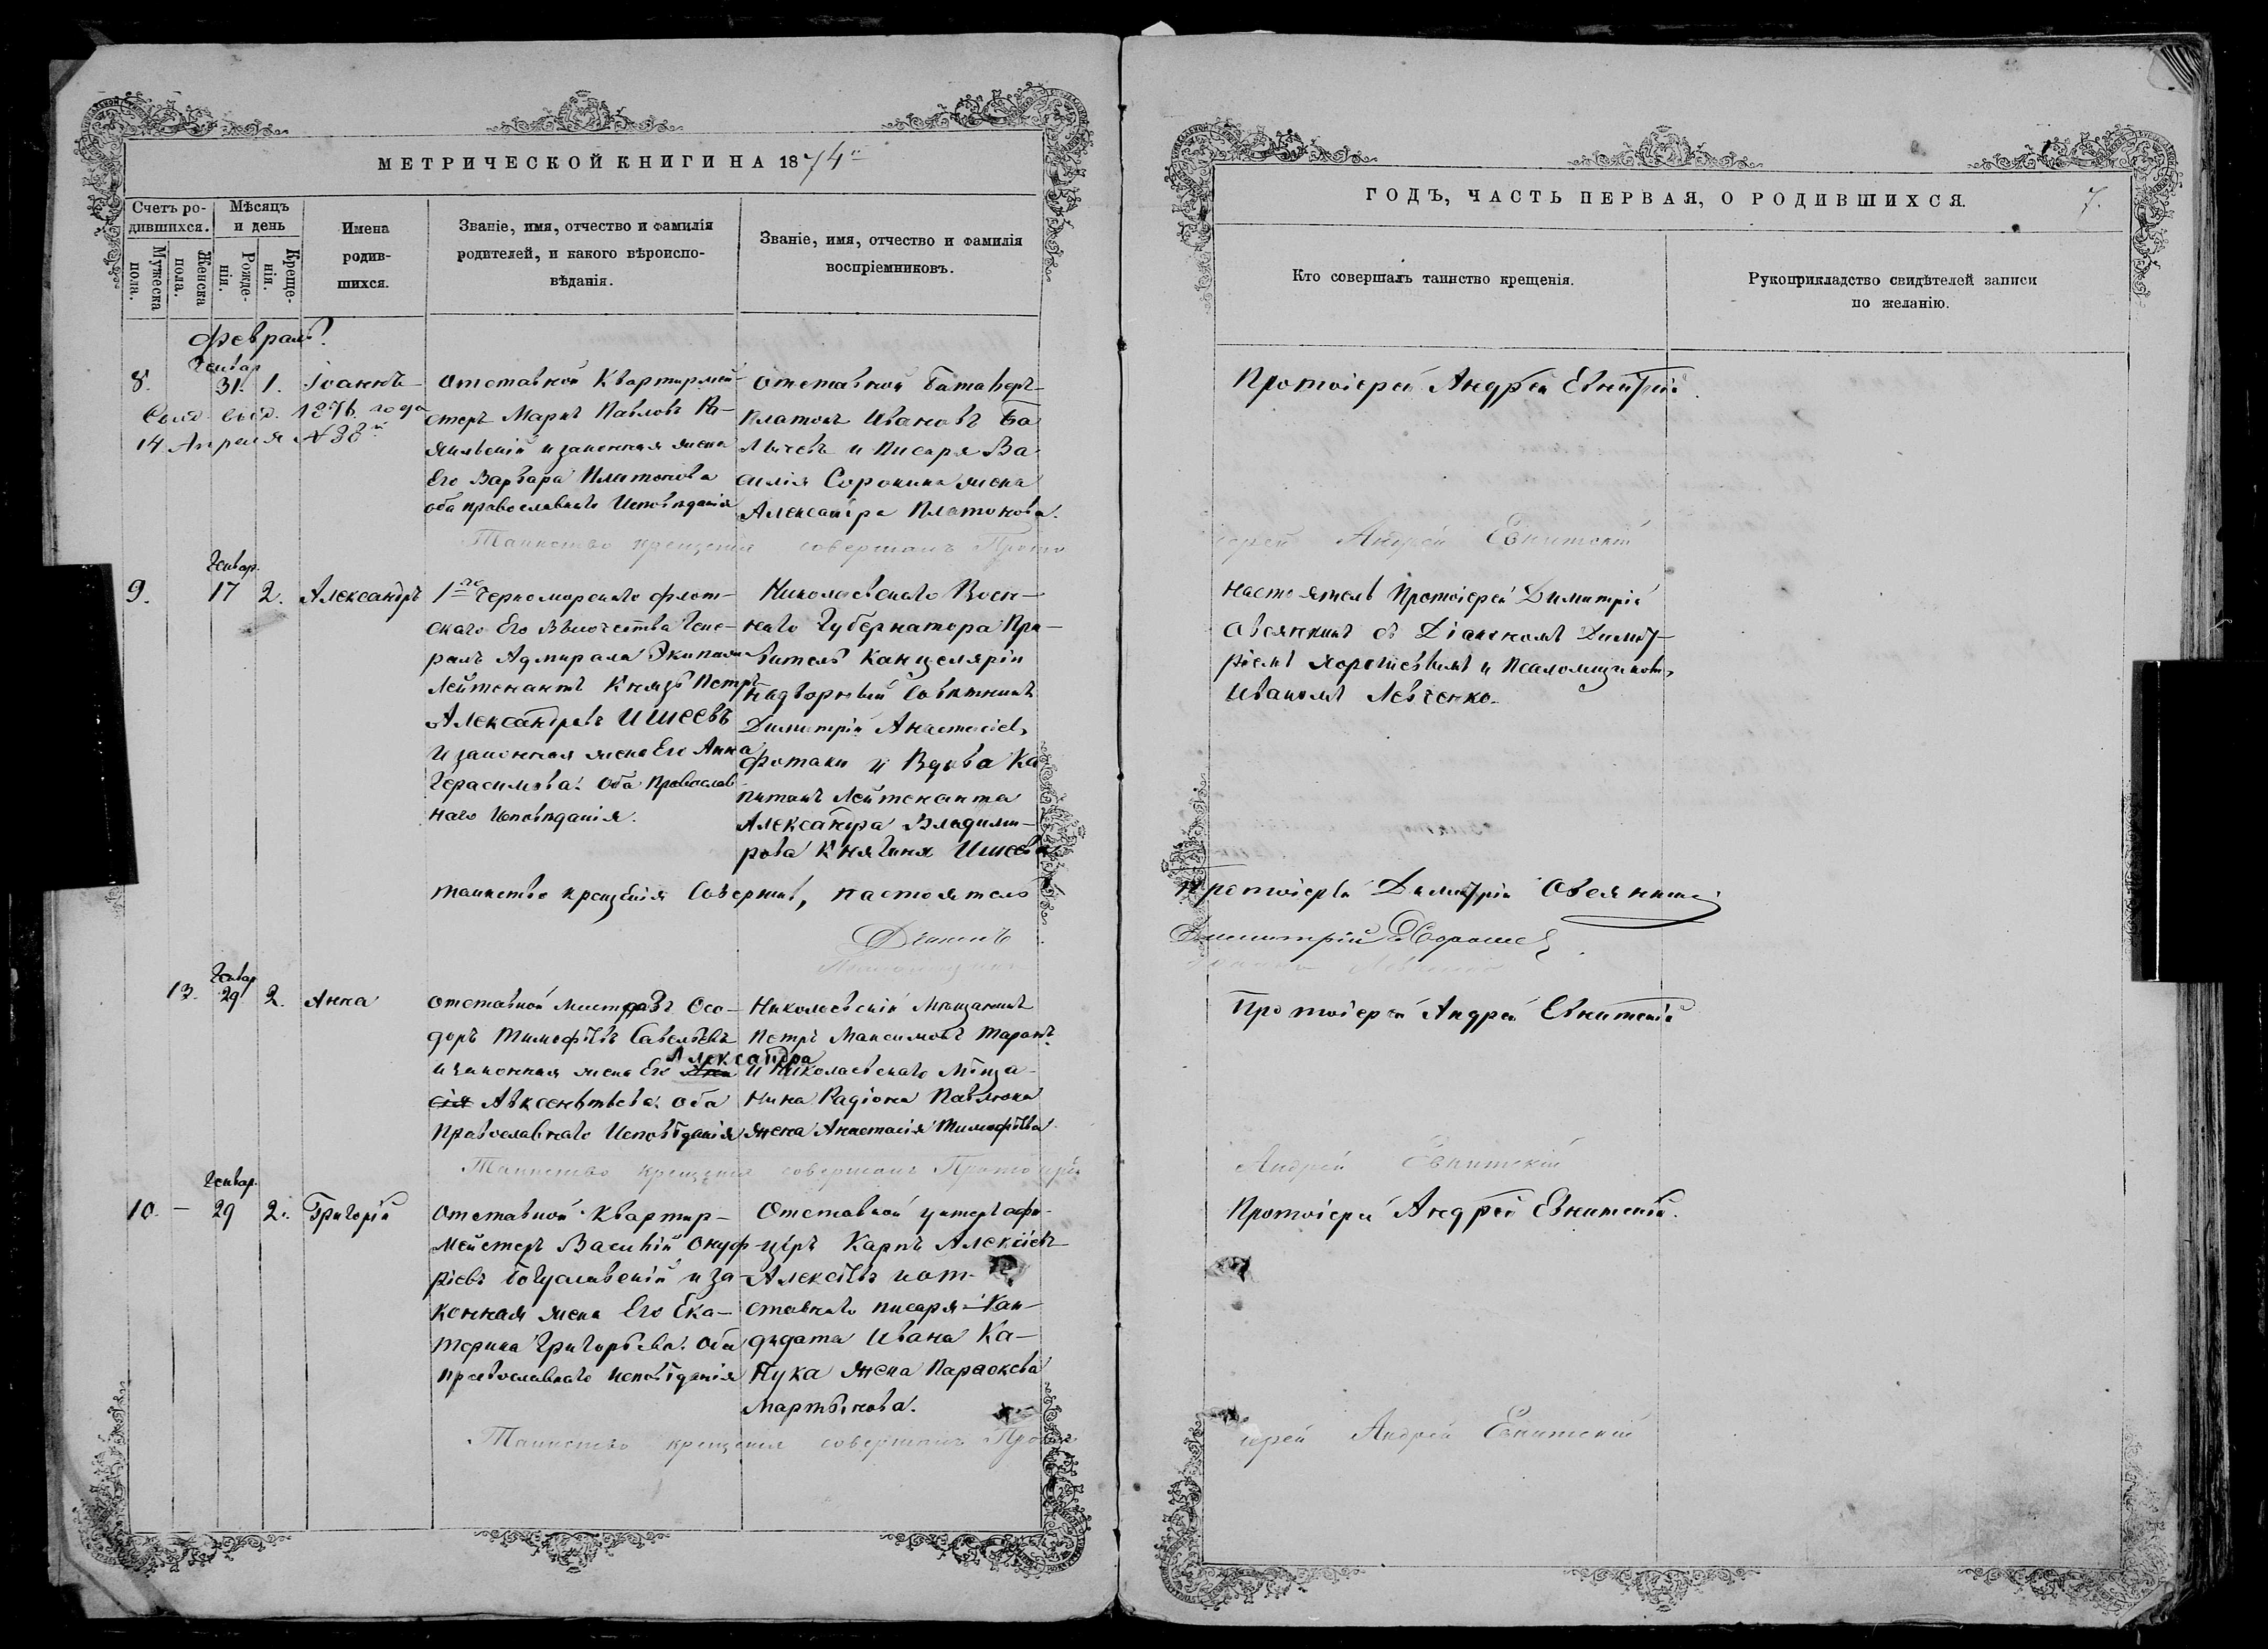 МЕТРИЧЕСКОЙ КНИГИ НА 1874й
Счетъ ро-
дившихся.
Мѣсяцъ
и день
Мужеска
пола.
Женска
пола.
Рожде-
нія.
Креще-
нія.
Имена
родив-
шихся.
Званіе, имя, отчество и фамилія
родителей, и какого вѣроиспо-
вѣданія.
Званіе, имя, отчество и фамилія
воспріемниковъ.
Февраль
8. Генвар 31. 1. Іоаннъ
14 Апреля № 38й
1876 года
Отставной Квартирмей-
стеръ Маркъ Павловъ
и законная жена
Его Варвара Платонова
оба православнаго Исповѣданія
Отставной
Платонъ Ивановъ Ба
и Писаря Ва
силія Сорокина жена
Александра Платонова.
Таинство крещенія совершалъ Прото
9. Генвар. 17 2. Александръ
1го Черноморскаго флот-
скаго Его Высочества Гене-
ралъ Адмирала Экипажа
Лейтенантъ Князь Петръ
Александровъ Ишеевъ
и законная жена Его Анна
Герасимова. Оба Православ
наго Исповѣданія.
Николаевскаго Воен-
наго Губернатора Пра-
витель Канцеляріи
надворный Совѣтникъ
Димитрій Анастасіевъ
Фотаки и Вдова Ка
питанъ Лейтенанта
Александра Владими-
рова Княгиня Ишеева
таинство крещенія Совершилъ, настоятель
Діаконъ
13. Генвар 29 2. Анна
Отставной
доръ Тимофѣевъ Савельевъ
и законная жена Его Александра
Авксентьева. оба
Православнаго Исповѣданія
Николаевскій Мѣщанинъ
Петръ Максимовъ Таранъ
и Николаевскаго Мѣща-
нина Радіона Павлюка
жена Анастасія Тимофѣева
Таинство крещенія совершалъ Протоіерей
10. — Генвар. 29 2. Григорій
Отставной Квартир-
мейстеръ Василій Онуф-
ріевъ Богуславскій и за-
конная жена Его Ека-
терина Григорьева. Оба
православнаго исповѣданія
Отставной унтеръ офи-
церъ Карпъ Алексіевъ
Алексѣевъ и от-
ставнаго писаря Кан-
дидата Ивана Ка-
пука жена Параскева
Мартынова.
Таинство крещенія совершалъ Прото
ГОДЪ, ЧАСТЬ ПЕРВАЯ, О РОДИВШИХСЯ.
7.
Кто совершалъ таинство крещенія.
Рукоприкладство свидѣтелей записи
по желанію.
Протоіерей Андрей Евнитскій.
іерей Андрей Евнитскій
Настоятель Протоіерей Димитрій
Овсянкинъ съ Діакономъ Димит-
ріемъ Хорошевымъ и Псаломщикомъ
Иваномъ Левченко.
Протоіерей Димитрій Овсянкинъ
Димитрій Хорошев
Левченко
Протоіерей Андрей Евнитскій
Андрей Евнитскій
Протоіерей Андрей Евнитскій.
іерей Андрей Евнитскій